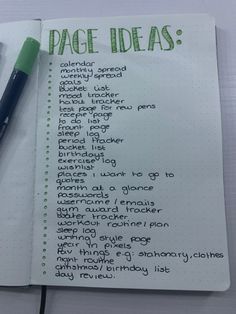 PAGE IDEAS:
calendar
monthly spread
weekly spread
goals
bucket list
mood tracker
habit tracker
test page for new pens
recepie page
to do list
front page
sleep log
period tracker
bucket list
birthdays
exercise log
wishlist
places i want to go to
quotes
month at a glance
passwords
username/emails
gym award tracker
tracker
workout routine/plan
sleep log
writing style page
year in pixels
fav things e.g: stationary, clothes
night routine
christmas/birthday list
day review.